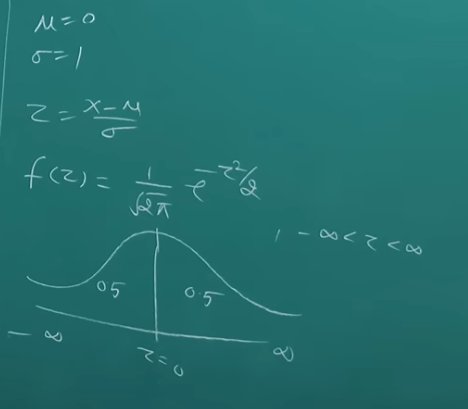 μ = 0
σ = 1
z = x - μ / σ
f(z) = 1/√2π e^-z²/2
, - ∞ < z < ∞
0.5 0.5
- ∞ z = 0 ∞